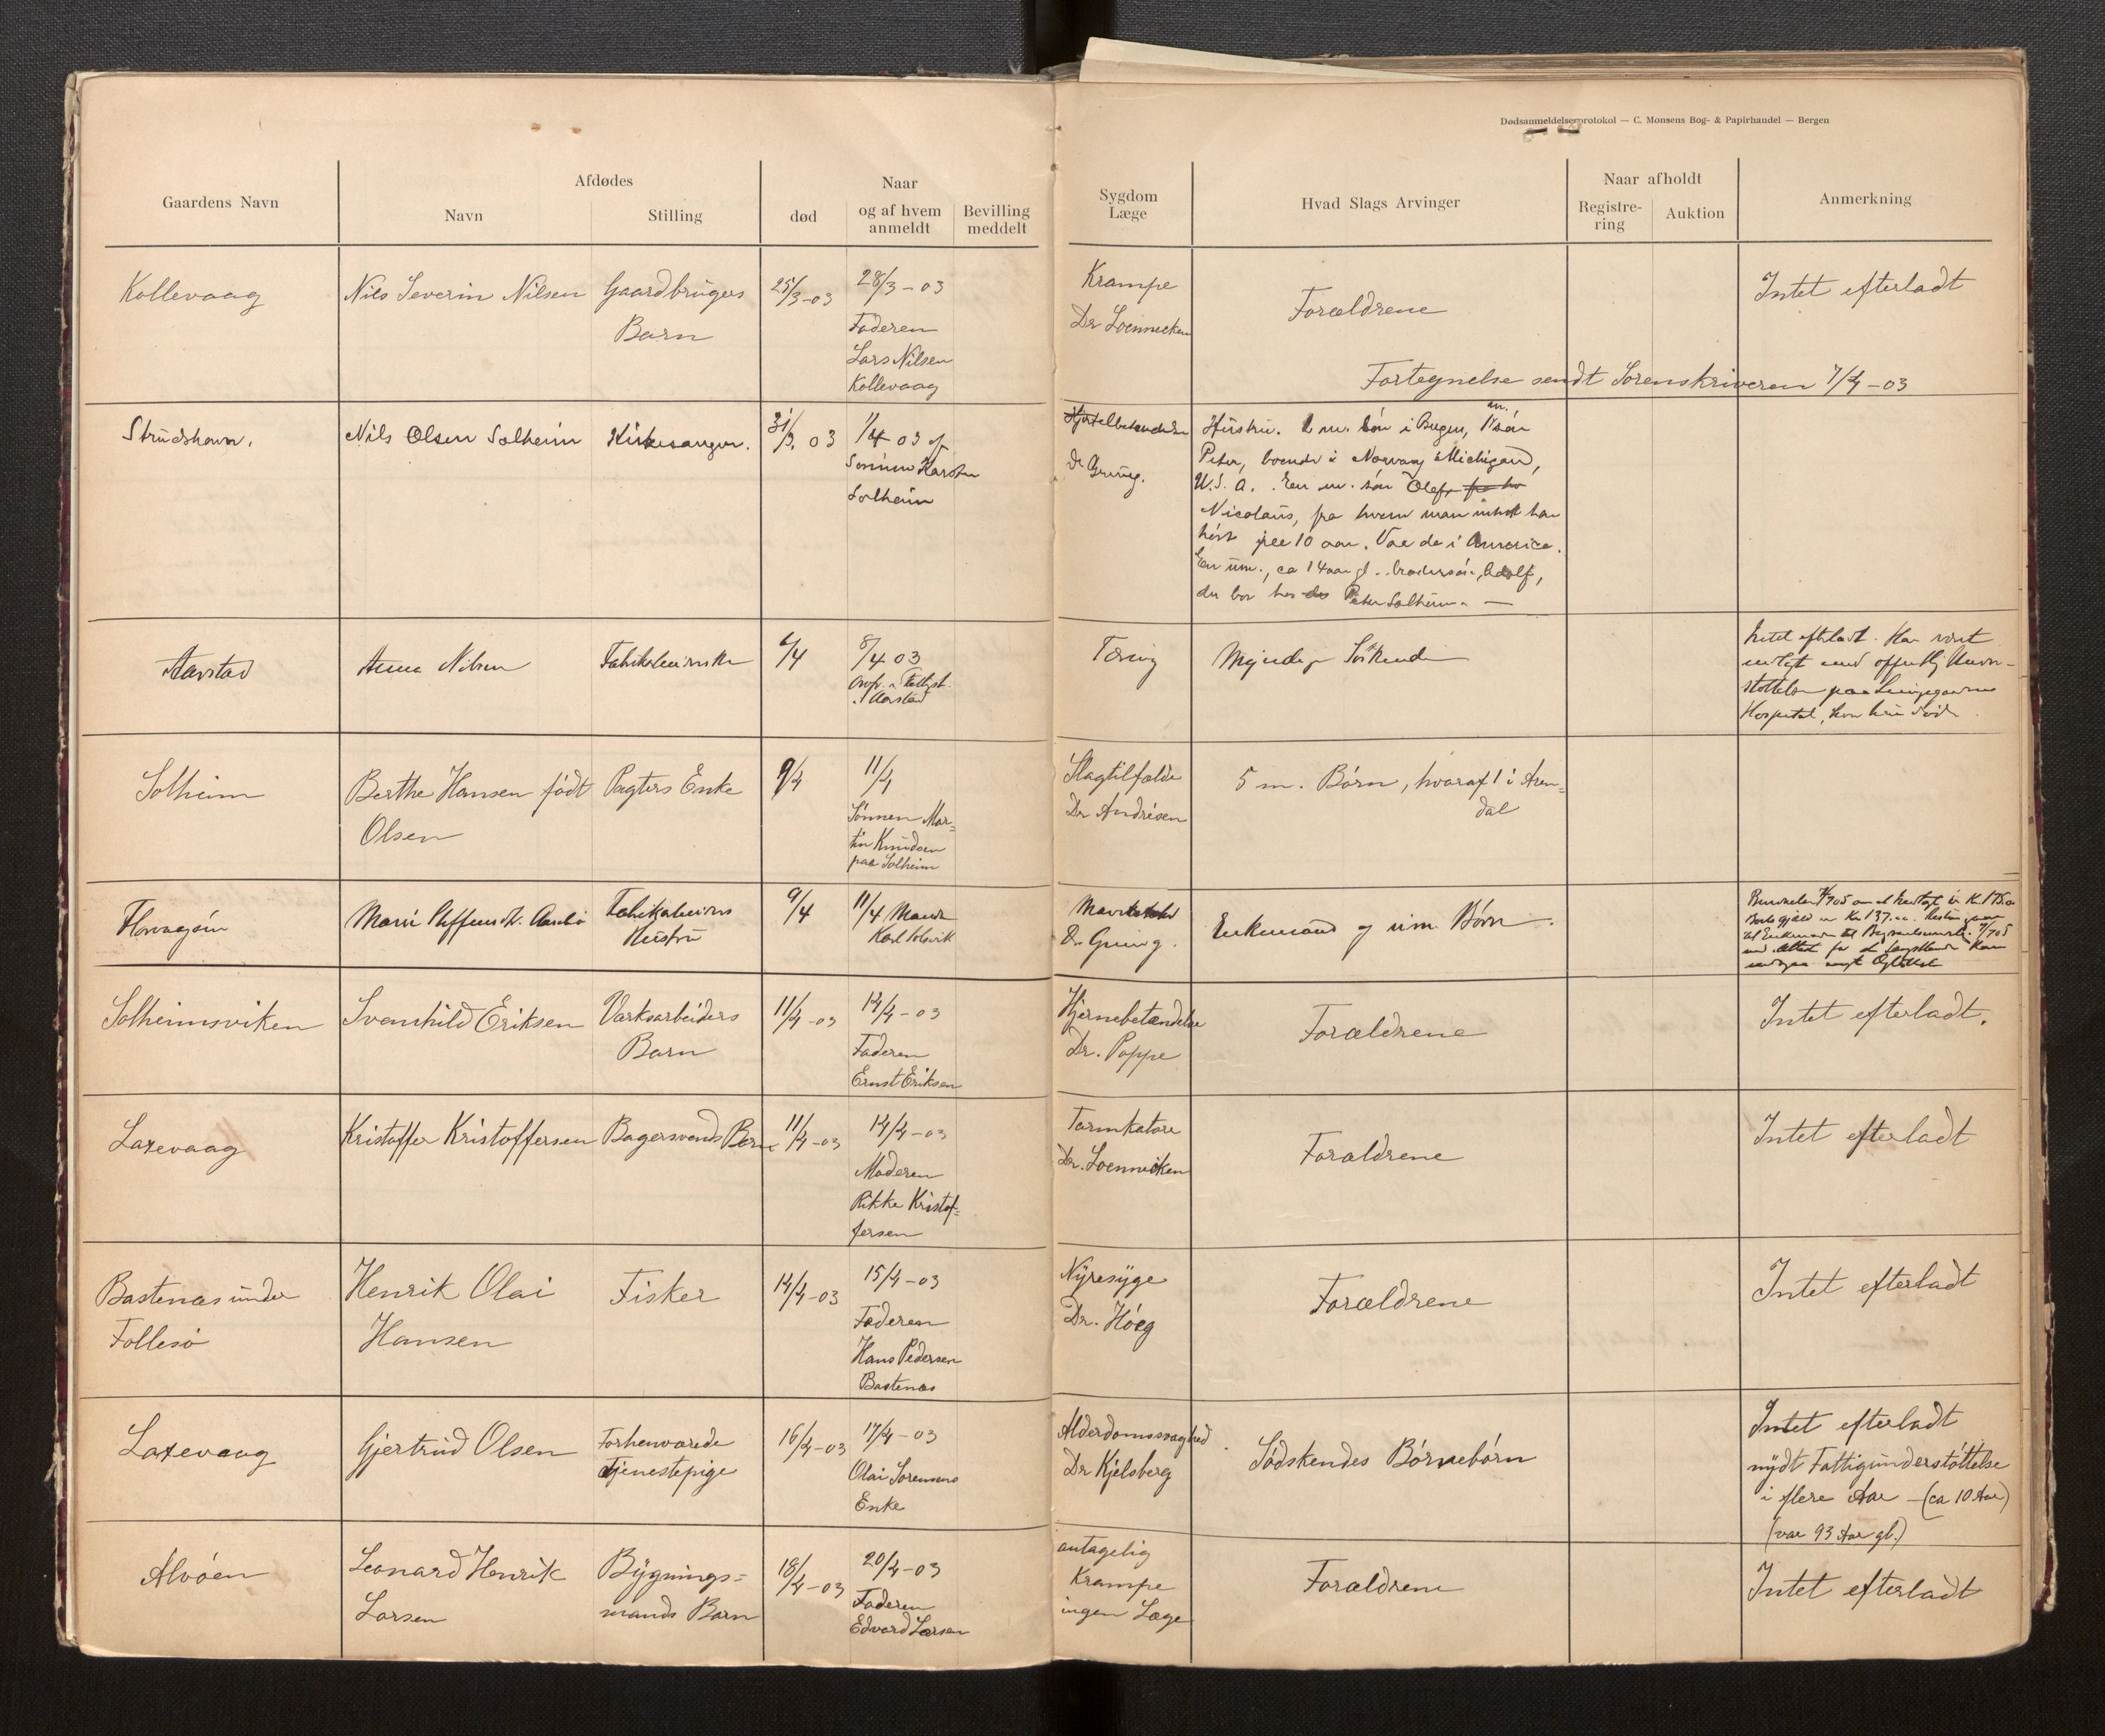 Dødsanmeldelsesprotokol — C. Monsens Bog- & Papirhandel — Bergen
Gaardens Navn
Afdødes
Navn
Stilling
død
Naar
og af hvem
anmeldt
Bevilling
meddelt
Sygdom
Læge
Hvad Slags Arvinger
Naar afholdt
Registre-
ring
Auktion
Anmerkning
Kollevaag
Nils Severin Nilsen
Gaardbrugers
Barn
25/3-03
28/3-03
Faderen
Lars Nilsen
Kollevaag
Krampe
Dr Loennecken
Forældrene
Intet efterladt
Fortegnelse sendt Sorenskriveren 7/4-03
Strudshavn.
Nils Olsen Solheim
Kirkesanger.
31/3. 03
1/4 03 af
Karsten
Solheim
dr Grung.
Hustru. 1 m. søn i Bergen, 1 m. søn
Peter, boende i Norway Michigan,
U.S.A. En m. søn Olaf
Nicolaus, fra hvem man intet har
hørt paa 10 aar. Var da i America.
En um., ca 14 aar gl. Adolf,
der bor hos Peter Solheim. —
Aarstad
Anna Nilsen
6/4
8/4 03
Aarstad
Tæring
Myndige Søskende
Intet efterladt. Har været
Hospital, hvor hun døde.
Solheim
Berthe Hansen født
Olsen
Pagters Enke
9/4
11/4
Sønnen Mar=
tin Knudsen
paa Solheim
Slagtilfælde
Dr Andrésen
5 m. Børn, hvoraf 1 i Aren=
dal
Florvagøen
Marie
Hustru
9/4
11/4 Manden
Karl
Dr Grung.
Enkemand og um. Børn.
Solheimsviken
Svanhild Eriksen
Værksarbeiders
Barn
11/4-03
14/4-03
Faderen
Ernst Eriksen
Hjernebetændelse
Dr. Poppe
Forældrene
Intet efterladt.
Laxevaag
Kristoffer Kristoffersen
Bagersvends Barn
11/4-03
14/4-03
Moderen
Rikke Kristof=
fersen
Tarmkatarr
Dr. Loennecken
Forældrene
Intet efterladt
Bastenæs under
Follesø
Henrik Olai
Hansen
Fisker
14/4-03
15/4-03
Faderen
Hans Pedersen
Bastenæs
Nyresyge
Dr. Høeg
Forældrene
Intet efterladt
Laxevaag
Gjertrud Olsen
Forhenværende
Tjenestepige
16/4-03
17/4-03
Olai Sørensens
Enke
Alderdomssvaghed
Dr Kjelsberg
Sødskendes Børnebørn
Intet efterladt
nydt Fattigunderstøttelse
i flere Aar — (ca 10 Aar)
(var 93 Aar gl.)
Alvøen
Leonard Henrik
Larsen
Bygnings=
mands Barn
18/4-03
20/4-03
Faderen
Edvard Larsen
antagelig
Krampe
ingen Læge
Forældrene
Intet efterladt